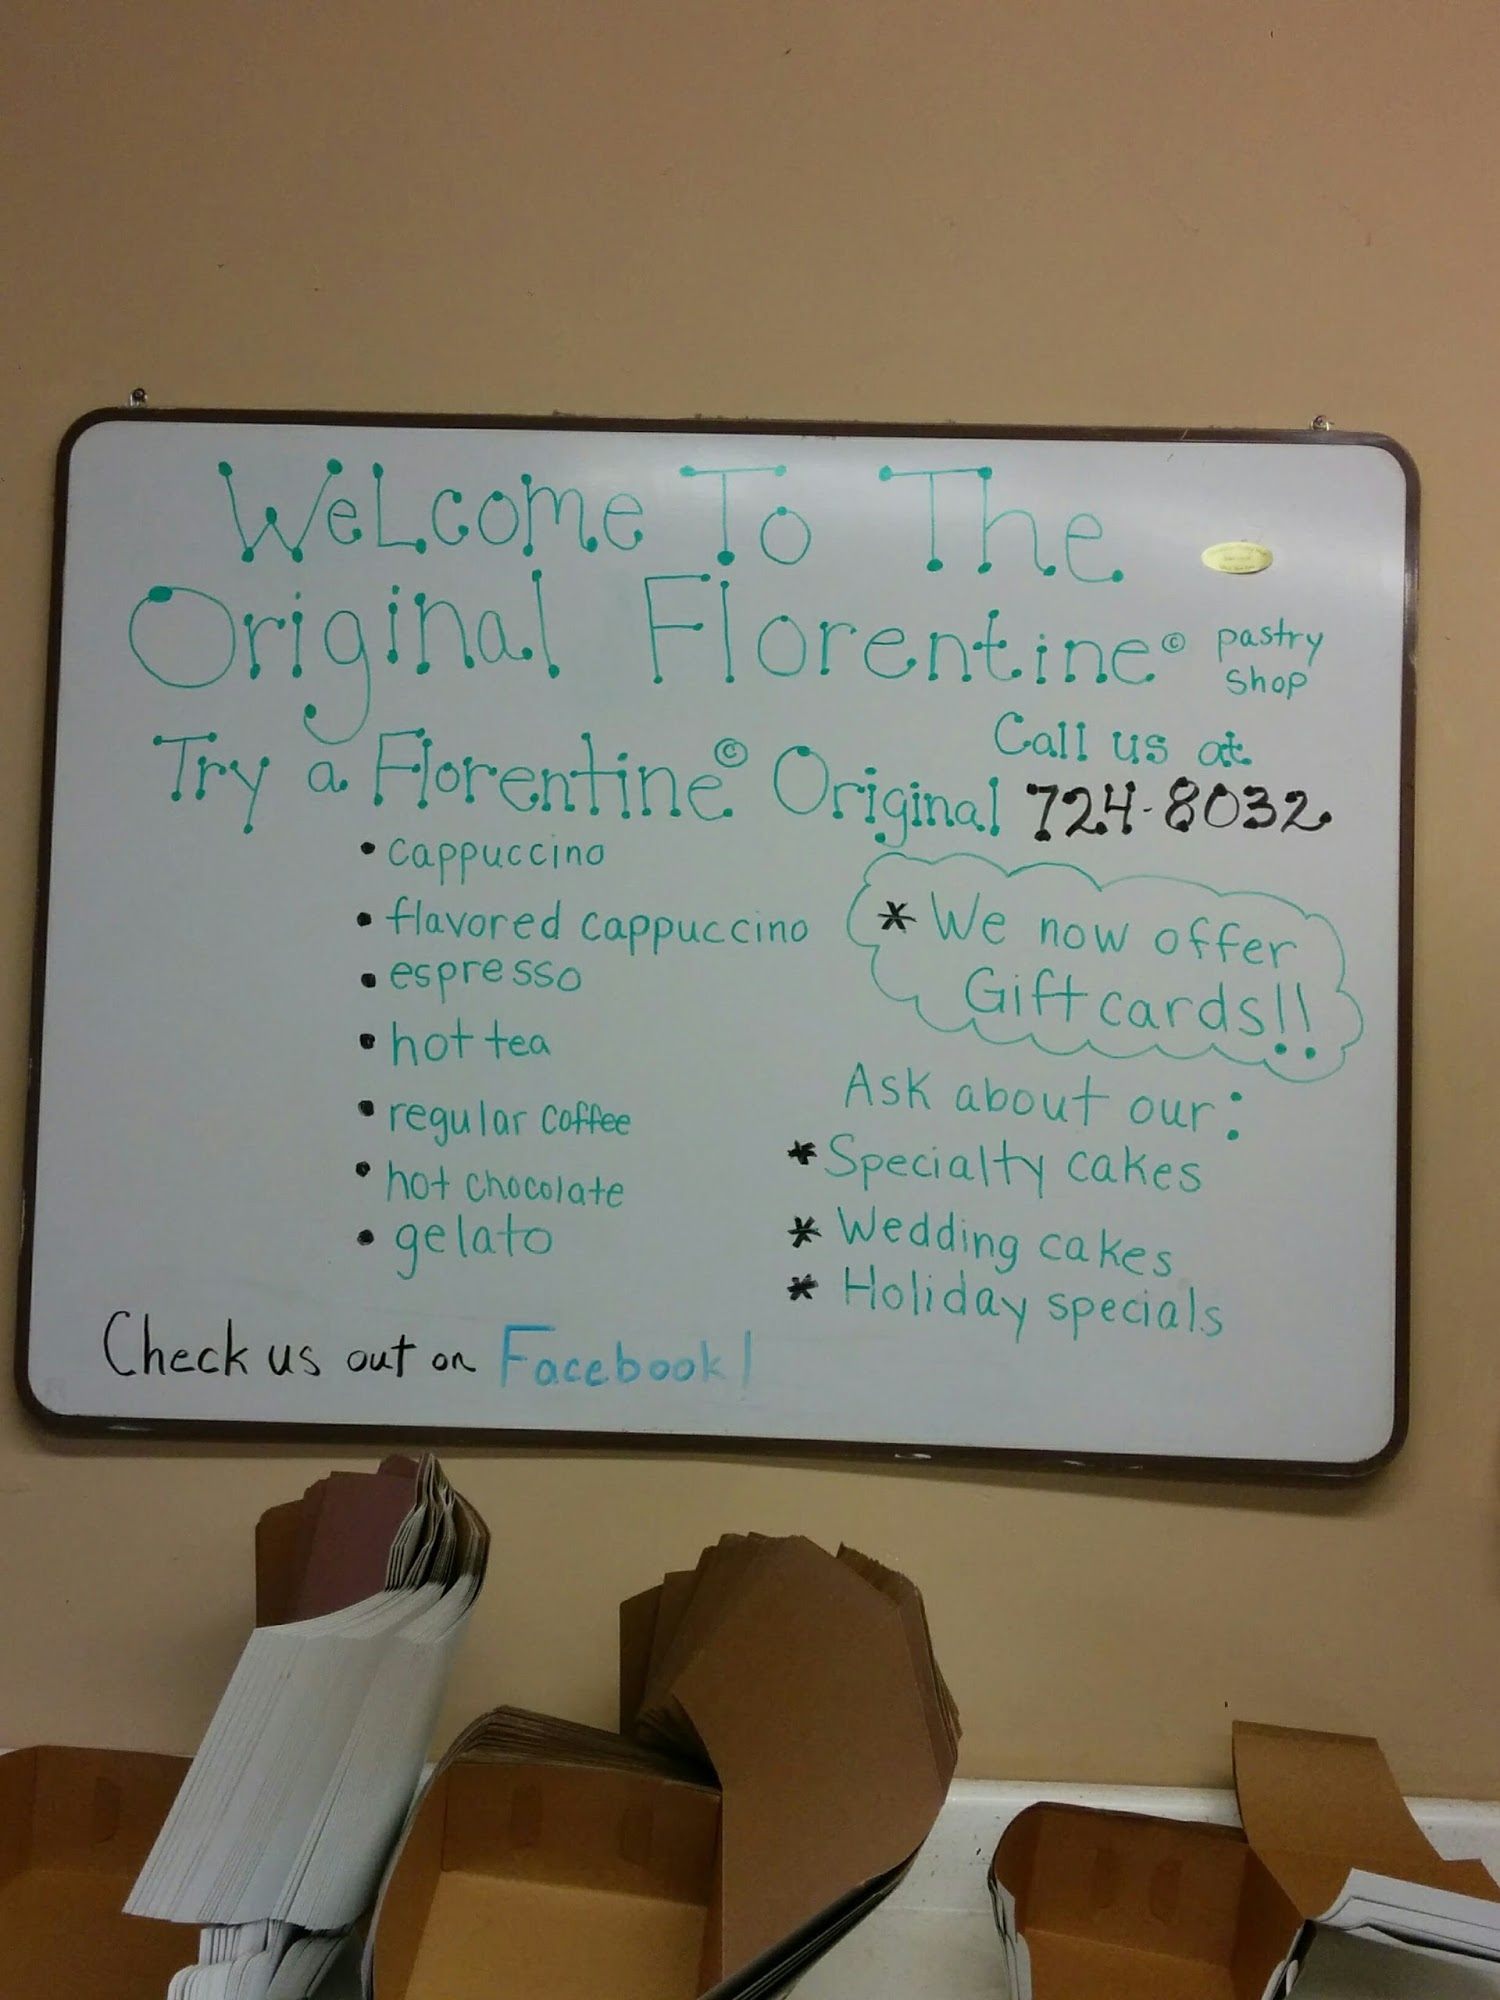 Welcome To The
Original Florentine© pastry shop
Try a Florentine© Original
• cappuccino
• flavored cappuccino
• espresso
• hot tea
• regular coffee
• hot chocolate
• gelato
Check us out on Facebook!
Call us at
724-8032
* We now offer
Gift cards!!
Ask about our:
* Specialty cakes
* Wedding cakes
* Holiday specials